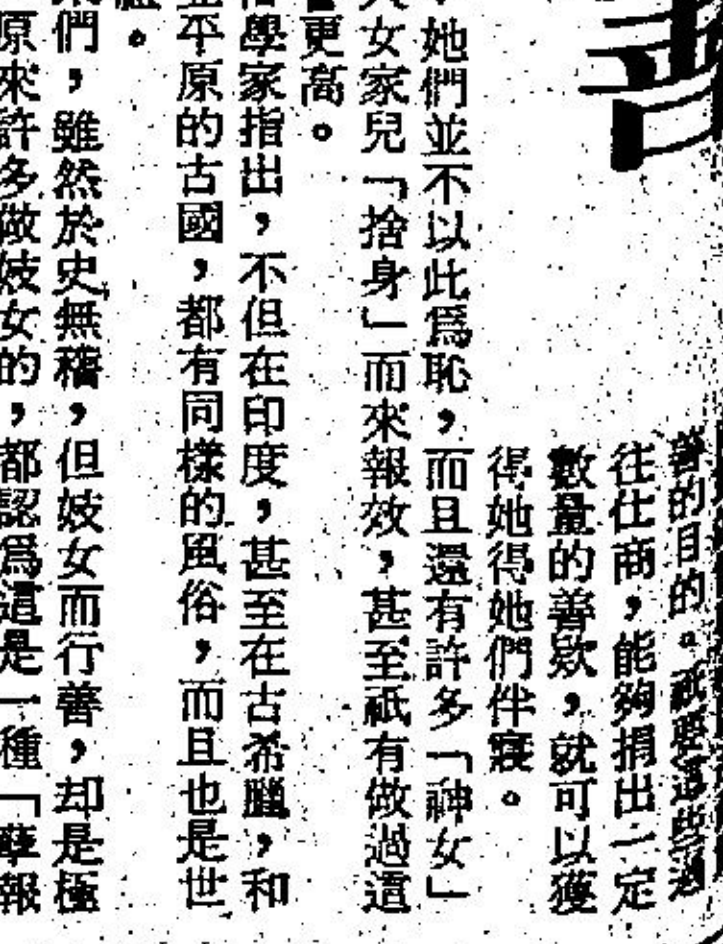 善的目的。祇要這些過
往仕商，能夠捐出一定
數量的善欵，就可以獲
得她得她們伴寢。
，她們並不以此爲恥，而且還有許多「神女」
女家兒「捨身」而來報效，甚至祇有做過這
更高。
學家指出，不但在印度，甚至在古希臘，和
平原的古國，都有同樣的風俗，而且也是世
。
們，雖然於史無稽，但妓女而行善，却是極
原來許多做妓女的，都認爲這是一種「孽報